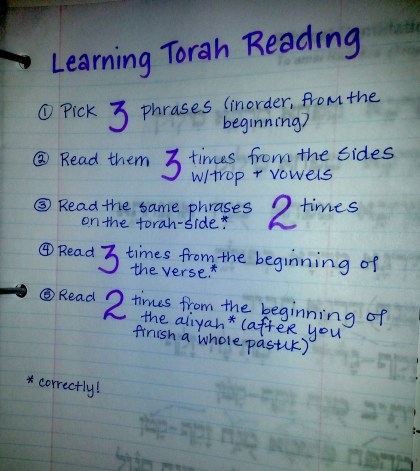 Learning Torah Reading
① Pick 3 phrases (inorder, from the
beginning)
② Read them 3 times from the sides
w/trop + vowels
③ Read the same phrases 2 times
on the torah-side*.
④ Read 3 times from the beginning of
the verse.*
⑤ Read 2 times from the beginning of
the aliyah* (after you
finish a whole pasuk)
* correctly!